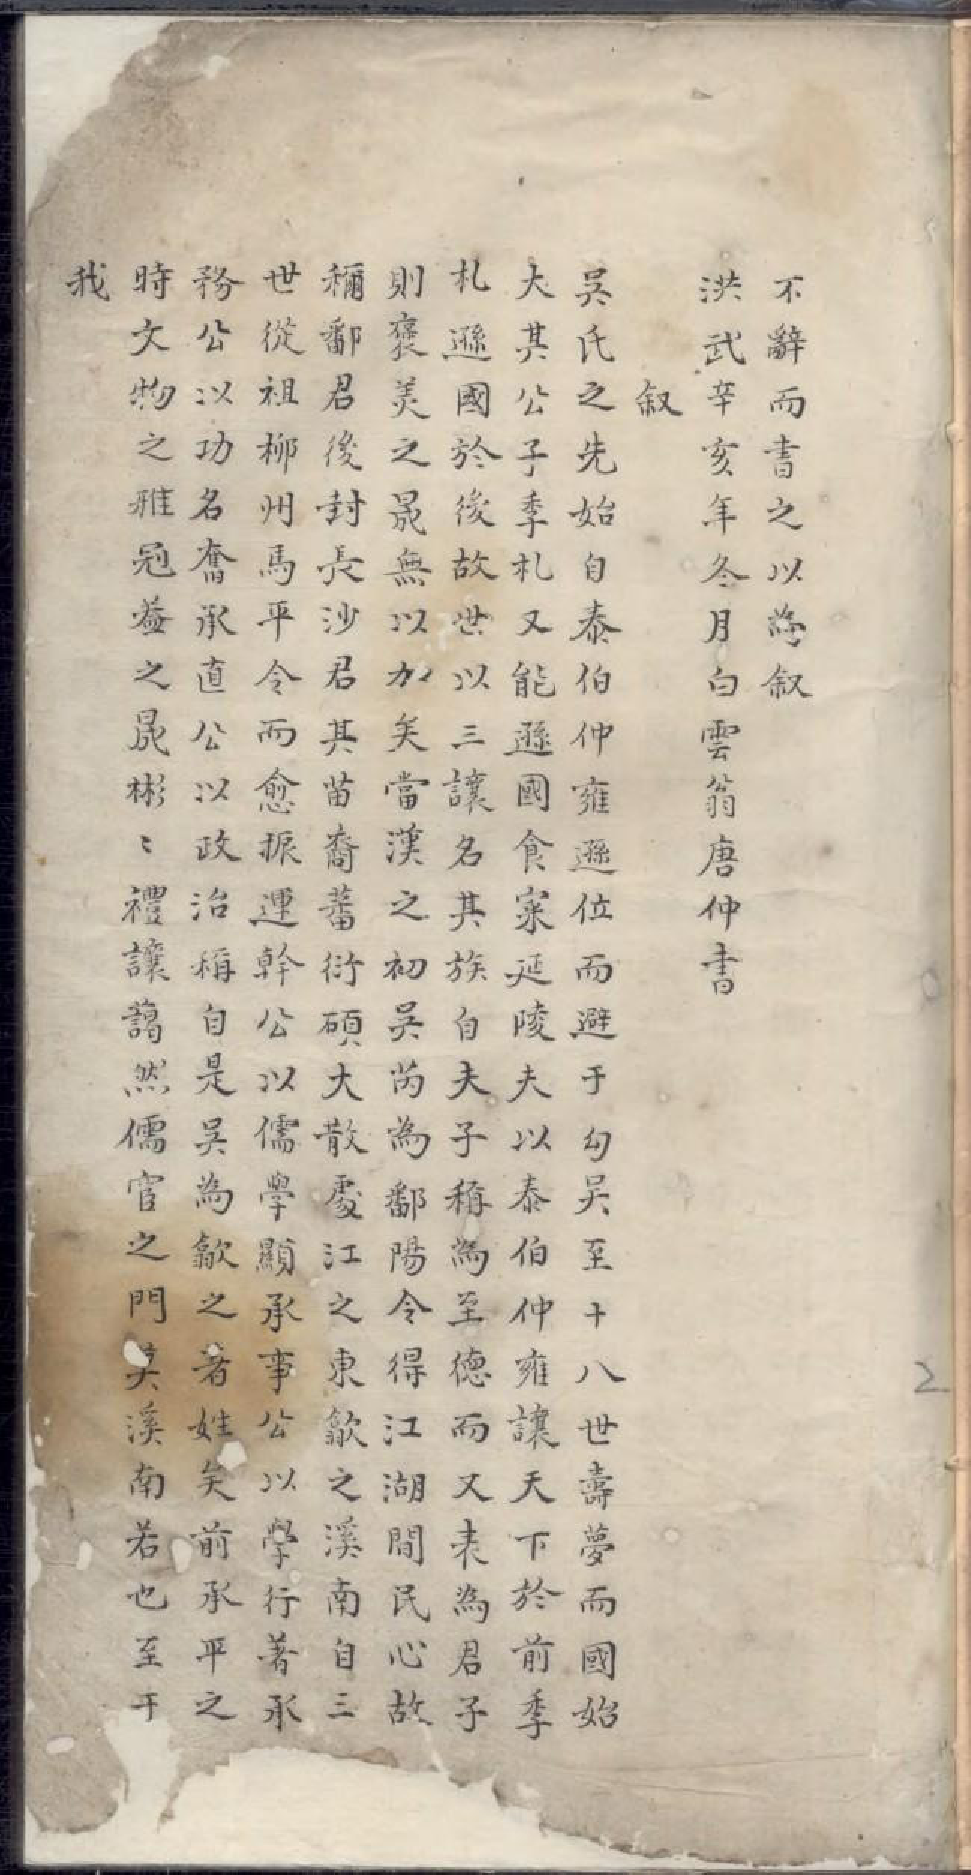 不辭而書之以為叙
洪武辛亥年冬月白雲翁唐仲書
叙
吳氏之先始自泰伯仲雍遜位而避于勾吴至十八世壽夢而國始
大其公子季札又能遜國食寀延陵夫以泰伯仲雍讓天下於前季
札遜國於後故世以三讓名其族自夫子稱為至德而又表為君子
則褒美之晟無以加矣當漢之初吴芮為鄱陽令得江湖間民心故
稱鄱君後封長沙君其苗裔蕃衍碩大散處江之東歙之溪南自三
世從祖柳州馬平令而愈振運幹公以儒學顯承事公以學行著承
務公以功名奮承直公以政治稱自是吴為歙之著姓矣前承平之
時文物之雅冠葢之晟彬〻禮讓藹然儒官之門莫溪南若也至于
我
2